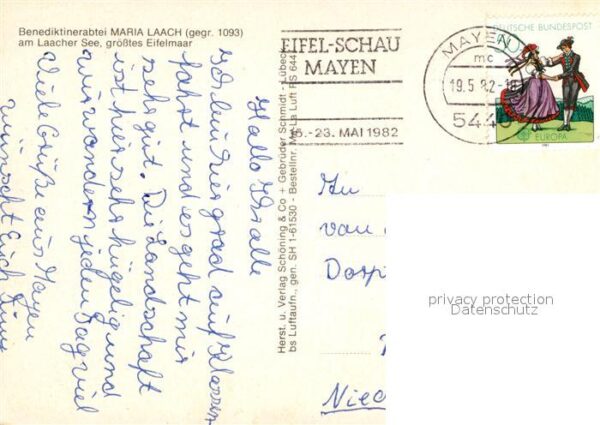 Benediktinerabtei MARIA LAACH (gegr. 1093)
am Laacher See, größtes Eifelmaar
Hallo Ihr alle
Ich bin hier grad auf Klassen
fahrt und es geht mir
sehr gut. Die Landschaft
ist hier sehr hügelig und
wir wandern jeden Tag viel
Viele Grüße aus Mayen
wünscht Euch
Herst. u. Verlag Schöning & Co + Gebrüder Schmidt · Lübeck
bs Luftaufn., gen. SH 1-61530 - Bestellnr. My-La Luft RS 644
EIFEL-SCHAU
MAYEN
15.-23. MAI 1982
MAYEN
mc
19.5.82-18
5440
DEUTSCHE BUNDESPOST
50
EUROPA
An
van
Dorp
Nied
privacy protection
Datenschutz